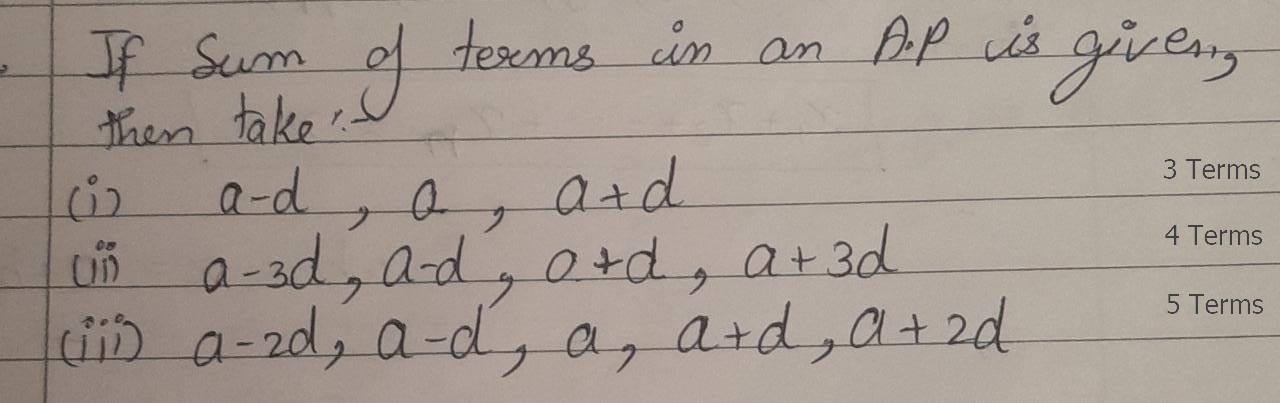 If Sum of terms in an A.P is given,
then take :-
(i) a-d, a, a+d 3 Terms
(ii) a-3d, a-d, a+d, a+3d 4 Terms
(iii) a-2d, a-d, a, a+d, a+2d 5 Terms